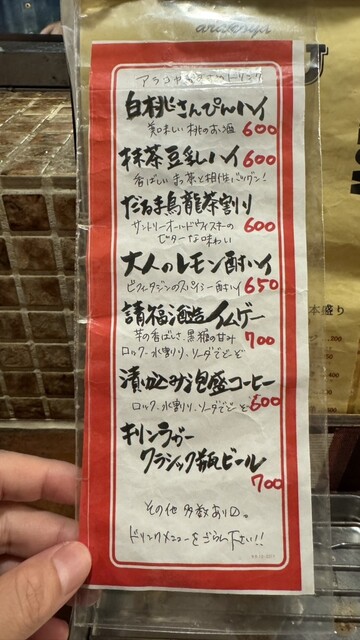 アラコヤ
白桃さんぴんハイ
美味しい桃のお酒 600
抹茶豆乳ハイ 600
香ばしいお茶と相性バツグン!
だるま烏龍茶割り
サントリーオールドウィスキーの 600
ビターな味わい
大人のレモン酎ハイ
ビフィータジンのスパイシー酎ハイ 650
請福酒造イムゲー
芋の香ばしさ、黒糖の甘み 700
ロック、水割り、ソーダでどーぞ
漬け込み泡盛コーヒー
ロック、水割り、ソーダでどーぞ 600
キリンラガー
クラシック瓶ビール
700
その他多数あり〼。
ドリンクメニューをごらん下さい!!
本盛り